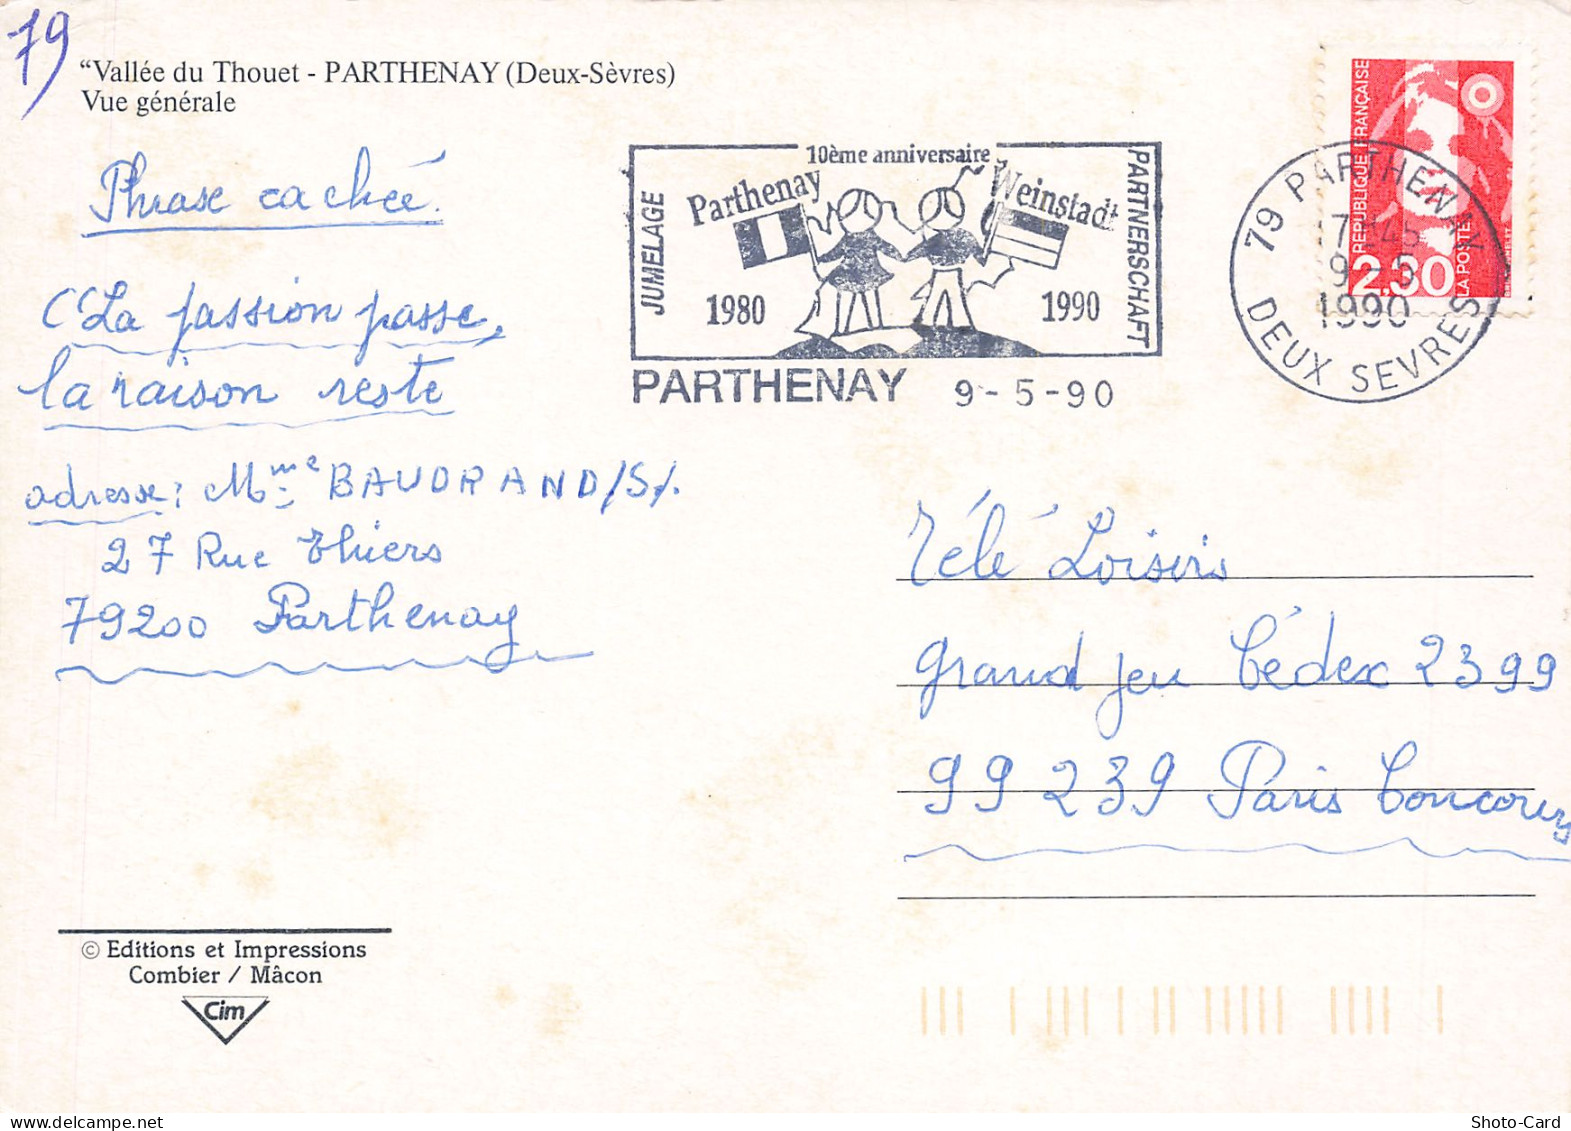 79
“Vallée du Thouet - PARTHENAY (Deux-Sèvres)
Vue générale
Phrase cachée.
"La passion passe,
la raison reste
adresse: Mme BAUDRAND/S/.
27 Rue Thiers
79200 Parthenay
JUMELAGE
10ème anniversaire
Parthenay
Weinstadt
1980
1990
PARTNERSCHAFT
PARTHENAY 9-5-90
79 PARTHENAY
17H45
9-5
1990
DEUX SEVRES
REPUBLIQUE FRANÇAISE
2,30
LA POSTE
Télé Loisirs
grand jeu Cédex 2399
99 239 Paris Concours
© Editions et Impressions
Combier / Mâcon
Cim
Shoto-Card